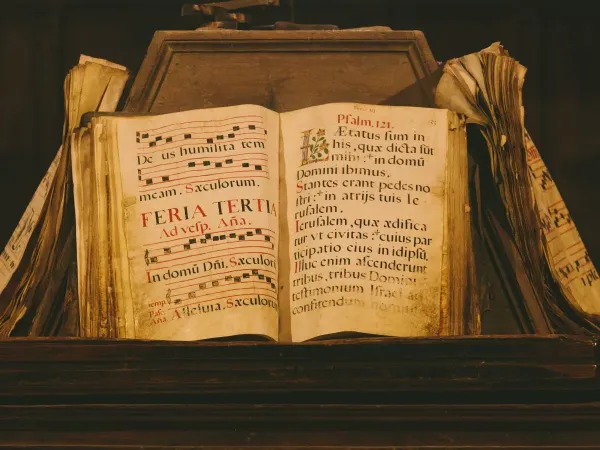 De us humilita tem
meam. Sæculorum.
FERIA TERTIA
Ad veſp. Aña.
In domũ Dñi. Sæculorũ.
temp.
Paſc.
Aña. Alleluia. Sæculorum.
Pſalm. 121.
LÆtatus ſum in
his, quæ dicta ſũt
mihi: in domũ
Domini ibimus.
Stantes erant pedes no
ſtri: in atrijs tuis Ie
ruſalem.
Ieruſalem, quæ ædifica
tur vt civitas: cuius par
ticipatio eius in idipſũ.
Illuc enim aſcenderunt
tribus, tribus Domini
teſtimonium Israel ad
confitendum nomini